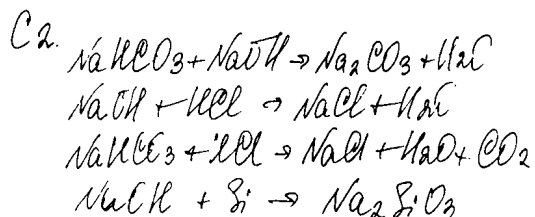 C2.
NaHCO3 + NaOH → Na2CO3 + H2O
NaOH + HCl → NaCl + H2O
NaHCO3 + HCl → NaCl + H2O + CO2
NaOH + Si → Na2SiO3